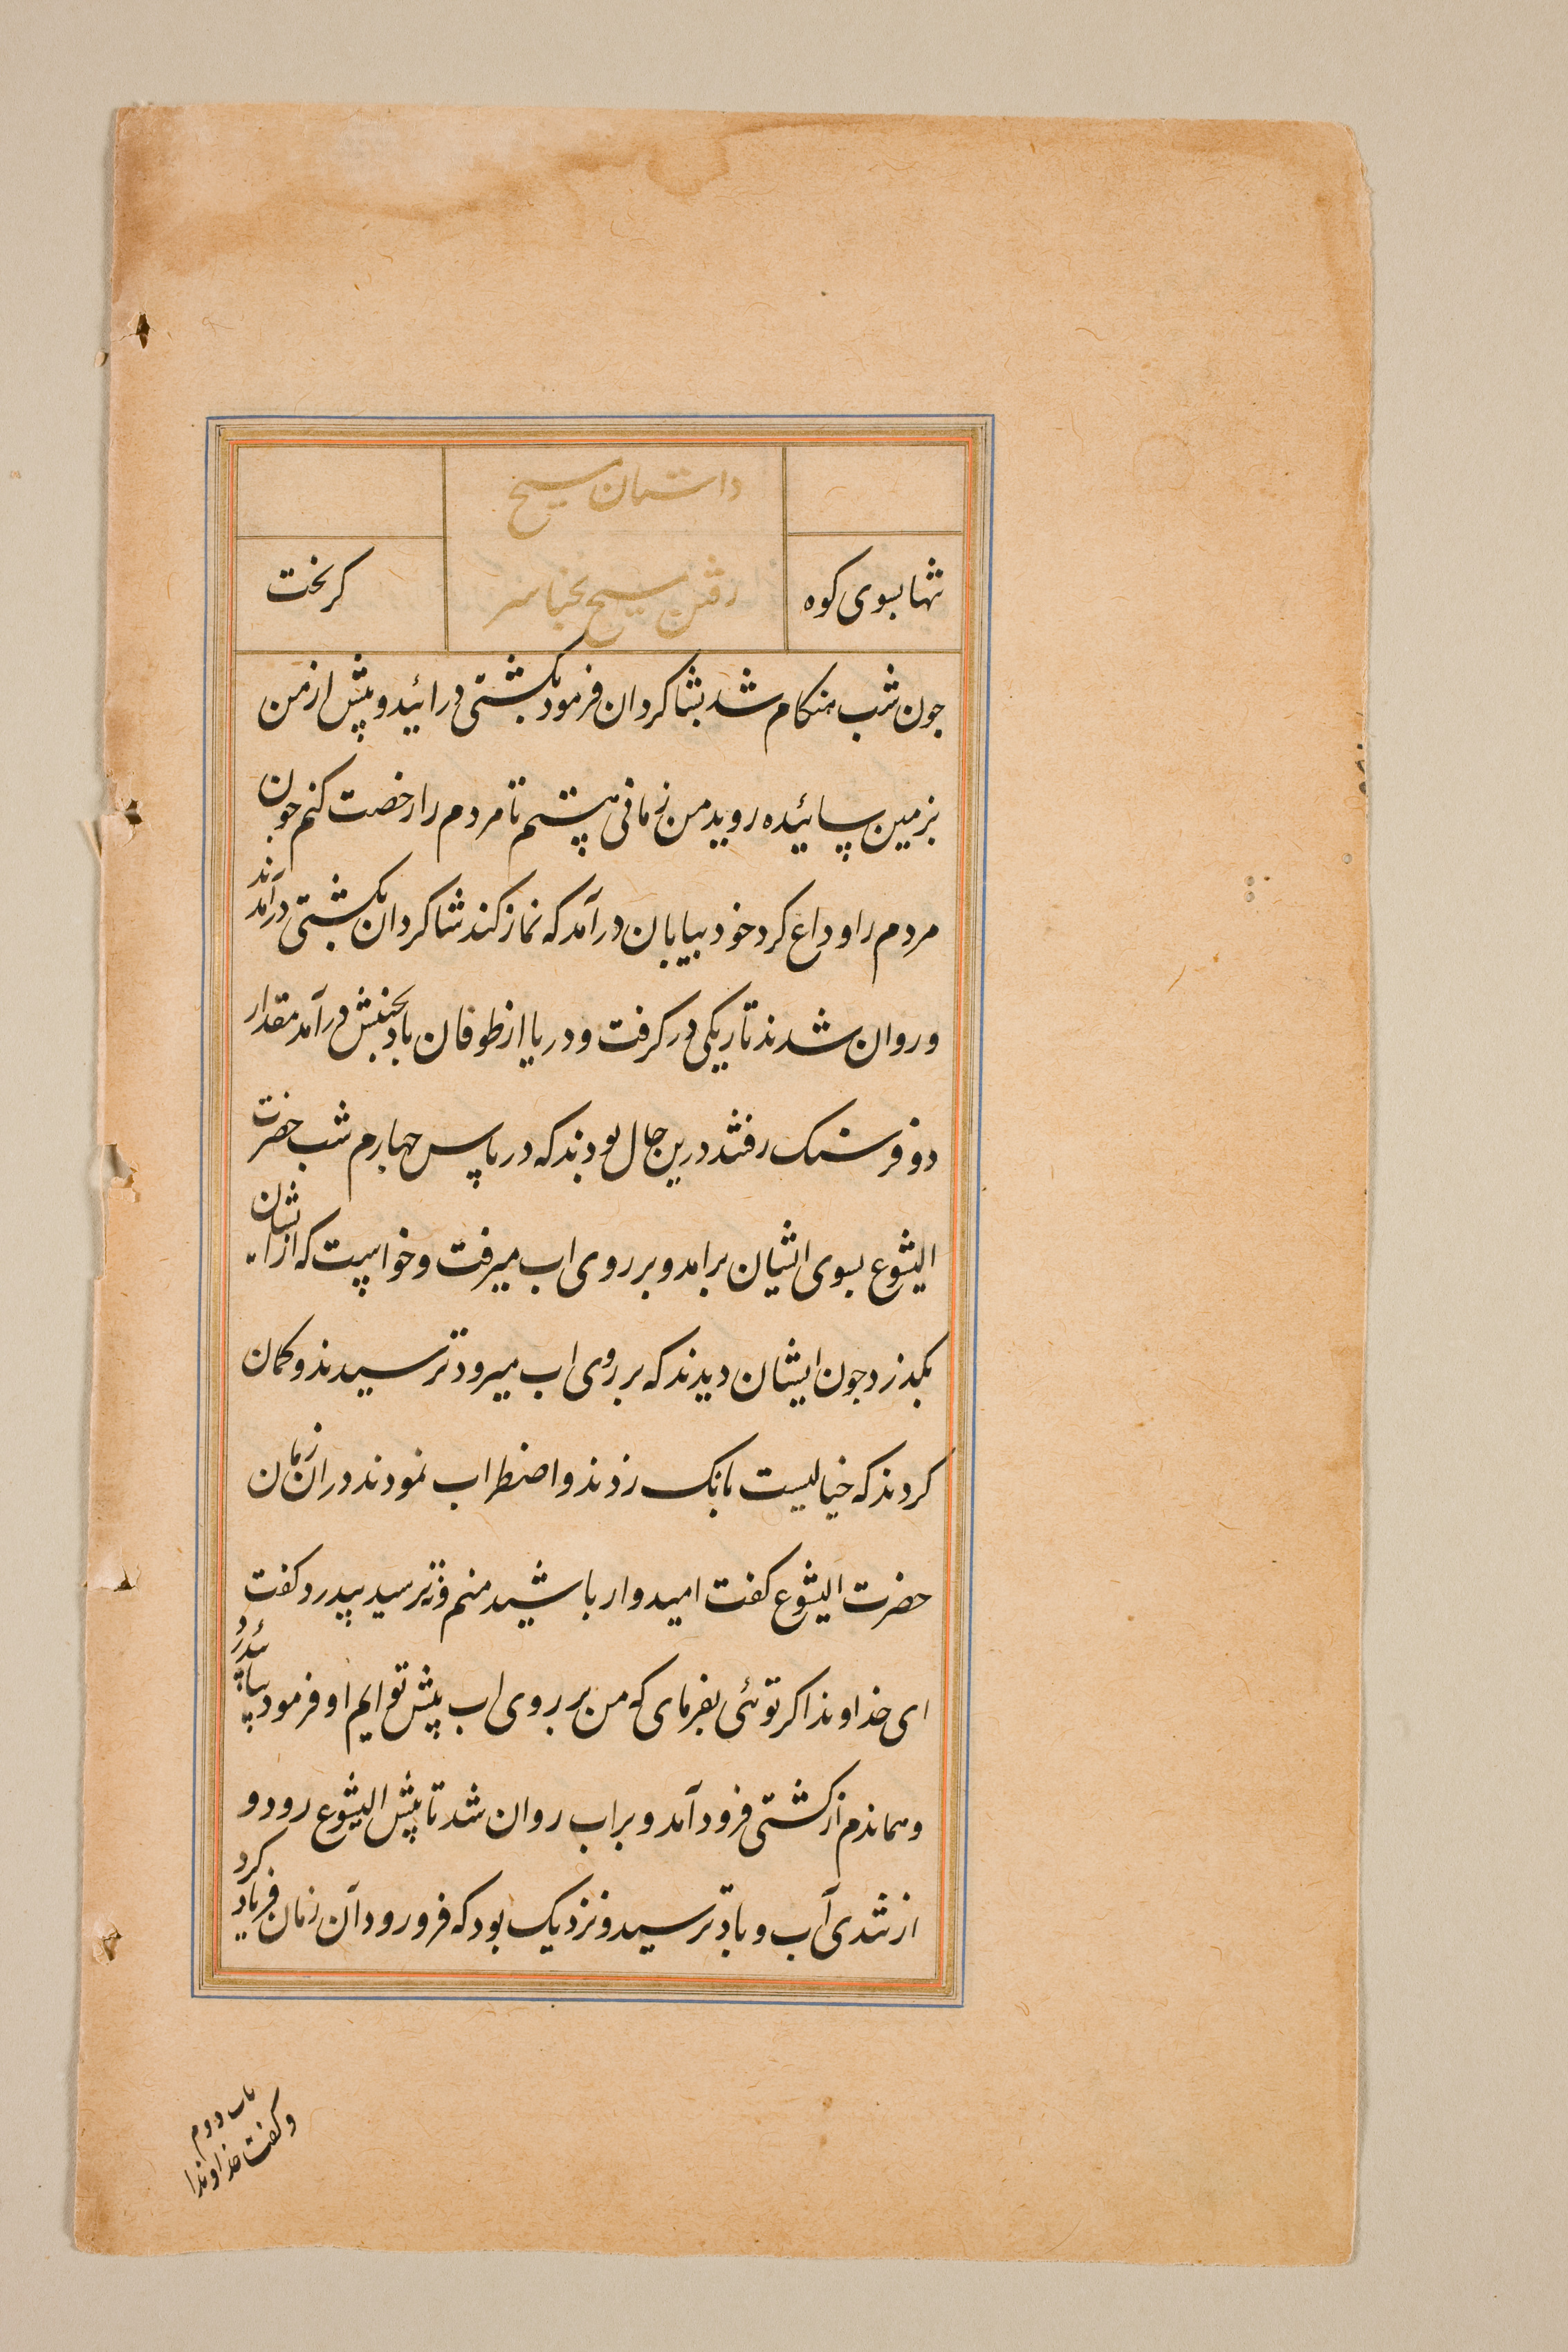 داستان مسیح
تنها بسوی کوه
رفتن مسیح
کریخت
جون شب هنکام شد بشاکردان فرمود بکشتی درائید و پیش از من
بزمین سائیده روید من زمانی تا مردم را رخصت کنم جون
مردم را وداع کرد خود ببیابان درآمد که نماز کند شاکردان بکشتی درآمدند
و روان شدند تاریکی در کرفت و دریا از طوفان باد بجنبش درآمد مقدار
دو فرسنک رفتند درین حال بودند که در پاس جهارم شب حضرت
الیشوع بسوی ایشان برامد و بر روی اب میرفت و خواست که از ایشان
بکذرد جون ایشان دیدند که بر روی اب میرود ترسیدند و کمان
کردند که خیالیست بانک زدند و اضطراب نمودند دران زمان
حضرت الیشوع کفت امیدوار باشید منم و نترسید پیدرو کفت
ای خداوند اکر توئی بفرمای که من بر روی اب پیش تو ایم او فرمود بیا پیدرُو
و هماندم از کشتی فرود آمد و بر اب روان شد تا پیش الیشوع رود و
از تندی آب و باد ترسید و نزدیک بود که فرو رود آن زمان فریاد کرد
باب دوم
و کفت خداوندا